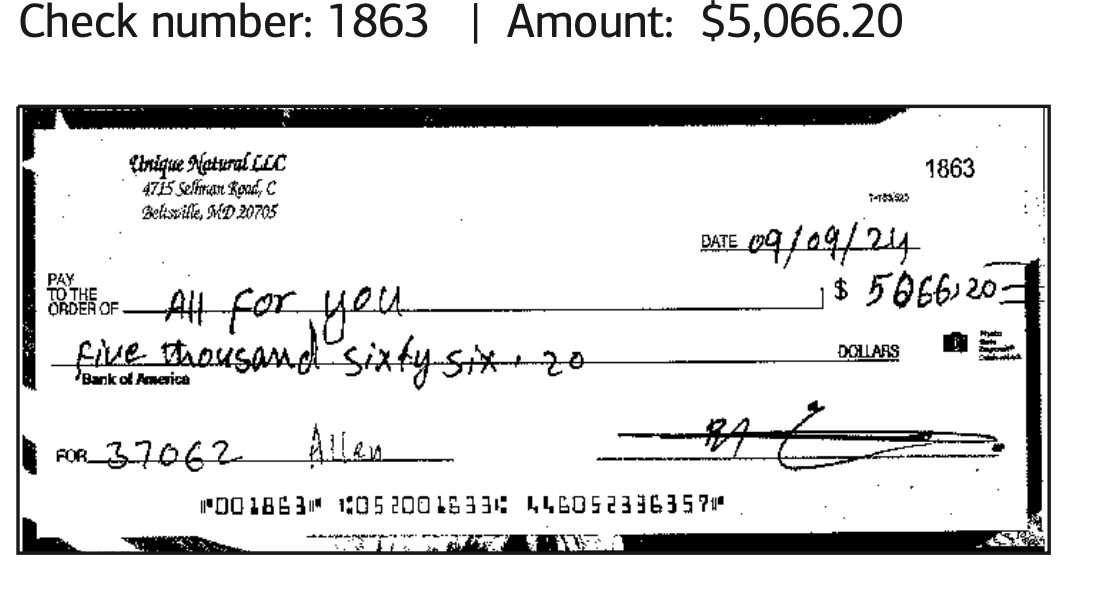 Check number: 1863 | Amount: $5,066.20
Unique Natural LLC
4715 Sellman Road, C
Beltsville, MD 20705
1863
DATE 09/09/24
PAY TO THE ORDER OF All for you $ 5066,20
Five thousand sixty six . 20 DOLLARS
Bank of America
FOR 37062 Allen
⑈001863⑈ ⑆052001633⑆ 446052336357⑈